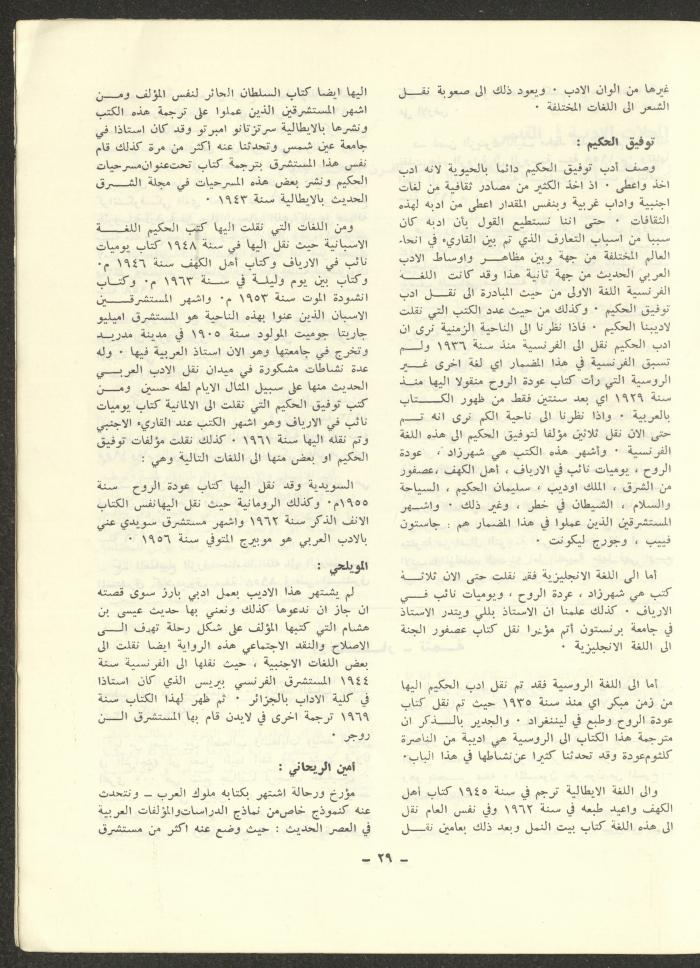 غيرها من الوان الادب ٠ ويعود ذلك الى صعوبة نقــل
الشعر الى اللغات المختلفة ٠
توفيق الحكيم :
وصف أدب توفيق الحكيم دائما بالحيوية لانه ادب
اخذ واعطى ٠ اذ اخذ الكثير من مصادر ثقافية من لغات
اجنبية واداب غربية وبنفس المقدار اعطى من ادبه لهذه
الثقافات ٠ حتى اننا نستطيع القول بان ادبه كان
سببا من اسباب التعارف الذي تم بين القاريء في انحاء
العالم المختلفة من جهة وبين مظاهــر واوساط الادب
العربي الحديث من جهة ثانية هذا وقد كانت اللغــة
الفرنسية اللغة الاولى من حيث المبادرة الى نقــل ادب
توفيق الحكيم ٠ وكذلك من حيث عدد الكتب التي نقلت
لاديبنا الحكيم ٠ فاذا نظرنا الى الناحية الزمنية نرى ان
ادب الحكيم نقل الى الفرنسية منذ سنة ١٩٣٦ ولــم
تسبق الفرنسية في هذا المضمار اي لغة اخرى غــير
الروسية التي رأت كتاب عودة الروح منقولا اليها منــذ
سنة ١٩٢٩ اي بعد سنتين فقط من ظهور الكـــتاب
بالعربية ٠ واذا نظرنا الى ناحية الكم نرى انه تــم
حتى الان نقل ثلاثين مؤلفا لتوفيق الحكيم الى هذه اللغة
الفرنسية ٠ وأشهر هذه الكتب هي شهرزاد ، عودة
الروح ، يوميات نائب في الارياف ، أهل الكهف ،عصفور
من الشرق ، الملك اوديب ، سليمان الحكيم ، السياحة
والسلام ، الشيطان في خطر ، وغير ذلك ٠ واشــهر
المستشرقين الذين عملوا في هذا المضمار هم : جاستون
فييب ، وجورج ليكونت ٠
أما الى اللغة الانجليزية فقد نقلت حتى الان ثلاثــة
كتب هي شهرزاد ، عودة الروح ، ويوميات نائب فــي
الارياف ٠ كذلك علمنا ان الاستاذ بللي ويتدر الاستاذ
في جامعة برنستون أتم مؤخرا نقل كتاب عصفور الجنة
الى اللغة الانجليزية ٠
أما الى اللغة الروسية فقد تم نقل ادب الحكيم اليها
من زمن مبكر اي منذ سنة ١٩٣٥ حيث تم نقل كتاب
عودة الروح وطبع في ليننغراد ٠ والجدير بالــذكر ان
مترجمة هذا الكتاب الى الروسية هي اديبة من الناصرة
كلثومعودة وقد تحدثنا كثيرا عننشاطها في هذا الباب٠
والى اللغة الايطالية ترجم في سنة ١٩٤٥ كتاب أهل
الكهف واعيد طبعه في سنة ١٩٦٢ وفي نفس العام نقل
الى هذه اللغة كتاب بيت النمل وبعد ذلك بعامين نقــل
اليها ايضا كتاب السلطان الحائر لنفس المؤلف ومــن
اشهر المستشرقين الذين عملوا على ترجمة هذه الكتب
ونشرها بالايطالية سرتزتانو امبرتو وقد كان استاذا في
جامعة عين شمس وتحدثنا عنه أكثر من مرة كذلك قام
نفس هذا المستشرق بترجمة كتاب تحتعنوانمسرحيات
الحكيم ونشر بعض هذه المسرحيات في مجلة الشــرق
الحديث بالايطالية سنة ١٩٤٣ ٠
ومن اللغات التي نقلت اليها كتب الحكيم اللغــة
الاسبانية حيث نقل اليها في سنة ١٩٤٨ كتاب يوميات
نائب في الارياف وكتاب أهل الكهف سنة ١٩٤٦ م٠
وكتاب بين يوم وليلــة في ســنة ١٩٦٣ م٠ وكتــاب
انشودة الموت سنة ١٩٥٣ م٠ واشهر المستشرقــين
الاسبان الذين عنوا بهذه الناحية هو المستشرق اميليو
جاريثا جوميت المولود سنة ١٩٠٥ في مدينة مدريــد
وتخرج في جامعتها وهو الان استاذ العربية فيها ٠ وله
عدة نشاطات مشكورة في ميدان نقل الادب العربــي
الحديث منها على سبيل المثال الايام لطه حسين ومــن
كتب توفيق الحكيم التي نقلت الى الالمانية كتاب يوميات
نائب في الارياف وهو اشهر الكتب عند القاريء الاجنبي
وتم نقله اليها سنة ١٩٦١ ٠ كذلك نقلت مؤلفات توفيق
الحكيم او بعض منها الى اللغات التالية وهي :
السويدية وقد نقل اليها كتاب عودة الروح سنة
١٩٥٥م٠ وكذلك الرومانية حيث نقل اليهانفس الكتاب
الانف الذكر سنة ١٩٦٢ واشهر مستشرق سويدي عني
بالادب العربي هو موبيرج المتوفي سنة ١٩٥٦ ٠
المويلحي :
لم يشتهر هذا الاديب بعمل ادبي بارز سوى قصته
ان جاز ان ندعوها كذلك ونعني بها حديث عيسى بن
هشام التي كتبها المؤلف على شكل رحلة تهدف الــى
الاصلاح والنقد الاجتماعي هذه الرواية ايضا نقلت الى
بعض اللغات الاجنبية ، حيث نقلها الى الفرنسية سنة
١٩٤٤ المستشرق الفرنسي بيريس الذي كان استاذا
في كلية الاداب بالجزائر ٠ ثم ظهر لهذا الكتاب سنة
١٩٦٩ ترجمة اخرى في لايدن قام بها المستشرق الــن
روجر ٠
أمين الريحاني :
مؤرخ ورحالة اشتهر بكتابه ملوك العرب ــ ونتحدث
عنه كنموذج خاصمن نماذج الدراساتوالمؤلفات العربية
في العصر الحديث : حيث وضع عنه اكثر من مستشرق
– ٢٩ –